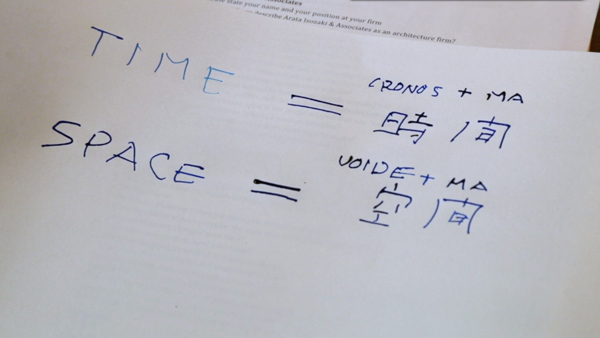 ssociates
state your name and your position at your firm
describe Arata Isozaki & Associates as an architecture firm?
TIME = CRONOS + MA
時 / 間
SPACE = VOIDE + MA
空 / 間